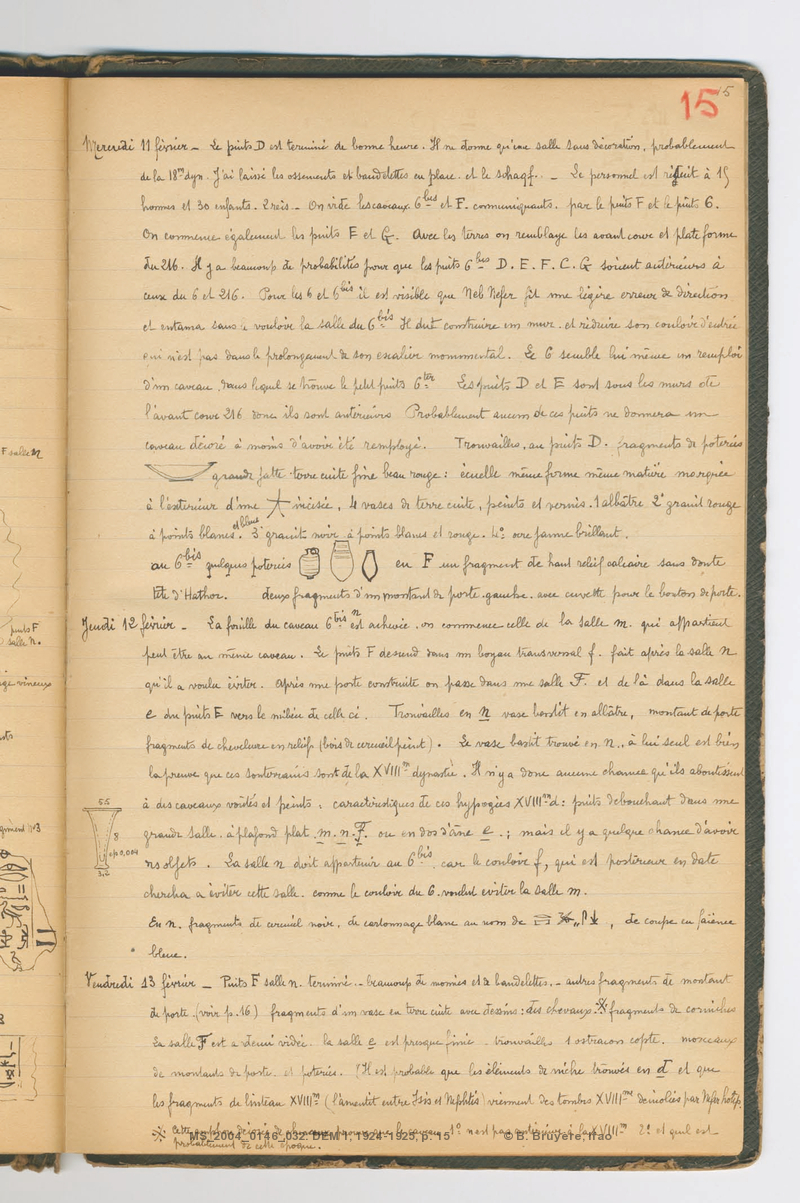 15
15
Mercredi 11 février – Le puits D est terminé de bonne heure. Il ne donne qu'une salle sans décoration, probablement
de la 18me dyn. J'ai laissé les ossements et bandelettes en place. et le schaqf. – Le personnel est réduit à 15
hommes et 30 enfants. 2 reis. – On vide les caveaux 6bis et F. communiquants. par le puits F et le puits 6.
On commence également les puits E et G. Avec les terres on remblaye les avant cours et plateforme
du 216. Il y a beaucoup de probabilités pour que les puits 6bis D. E. F. C. G soient antérieurs à
ceux du 6 et 216. Pour les 6 et 6bis il est visible que Neb Nefer fit une légère erreur de direction
et entama sans le vouloir la salle du 6bis Il dut construire un mur. et réduire son couloir d'entrée
qui n'est pas dans le prolongement de son escalier monumental. Le 6 semble lui même un remploi
d'un caveau dans lequel se trouve le petit puits 6ter Les puits D et E sont sous les murs de
l'avant cour 216 donc ils sont antérieurs Probablement aucun de ces puits ne donnera un
caveau décoré à moins d'avoir été remployé. Trouvailles, au puits D. fragments de poteries
grande jatte terre cuite fine beau rouge : écuelle même forme même matière marquée
à l'extérieur d'une incisée, 4 vases de terre cuite, peints et vernis. 1 albâtre 2° granit rouge
à points blancs et bleus. 3° granit noir à points blancs et rouge. 4° ocre jaune brillant.
au 6bis quelques poteries en F un fragment de haut relief calcaire sans doute
tête d'Hathor. deux fragments d'un montant de porte gauche. avec cuvette pour le bouton de porte.
Jeudi 12 février – La fouille du caveau 6bis n est achevée. on commence celle de la salle m. qui appartient
peut être au même caveau. Le puits F descend dans un boyau transversal f. fait après la salle n
qu'il a voulu éviter. après une porte construite on passe dans une salle F. et de là dans la salle
e du puits E vers le milieu de celle ci. Trouvailles en n vase bastit en albâtre, montant de porte
fragments de chevelure en relief (bois de cercueil peint). Le vase bastit trouvé en n., à lui seul est bien
la preuve que ces souterrains sont de la XVIIIme dynastie. Il n'y a donc aucune chance qu'ils aboutissent
à des caveaux voûtés et peints ; caractéristiques de ces hypogées XVIIIme d : puits débouchant dans une
grande salle à plafond plat m. n. F. ou en dos d'âne e. ; mais il y a quelque chance d'avoir
ns objets. La salle n doit appartenir au 6bis car le couloir f, qui est postérieur en date
chercha à éviter cette salle. comme le couloir du 6. voulut éviter la salle m.
5.5
8
ep 0,004
En n. fragments de cercueil noir, de cartonnage blanc au nom de , de coupe en faïence
bleue.
Vendredi 13 février – Puits F salle n. terminé. – beaucoup de momies et de bandelettes. – autres fragments de montant
de porte. (voir p. 16.) fragments d'un vase en terre cuite avec dessins : des chevaux. ※ fragments de corniches
La salle F est à demi vidée. la salle e est presque finie – trouvailles 1 ostracon copte. morceaux
de montants de porte. et poteries. (Il est probable que les éléments de niche trouvés en d et que
les fragments de linteau XVIIIme (l'amentit entre Isis et Nephtés) viennent des tombes XVIIIme démolies par Neferhotep.
※ caveau 1° n'est pas antérieur à la XVIIIme 2° et qu'il est
probablement de cette époque.
MS_2004_0146_032. DEM 1, 1924-1925, p. 15 © B. Bruyère, Ifao
F salle n
puits F
salle n.